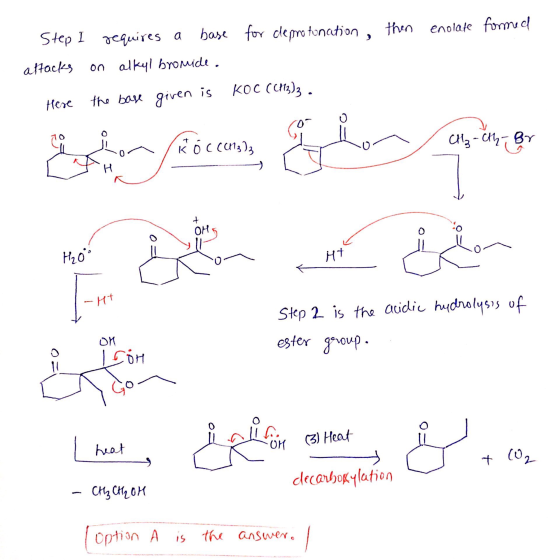 Step I requires a base for deprotonation, then enolate formed
attacks on alkyl bromide.
Here the base given is KOC(CH3)3.
O O O H
K+ O- C(CH3)3
O- O O
CH3-CH2-Br
H2O
O +OH O
H+
O O O
-H+
Step 2 is the acidic hydrolysis of
ester group.
O OH OH O
heat
- CH3CH2OH
O O OH
(3) Heat
decarboxylation
O
+ CO2
Option A is the answer.